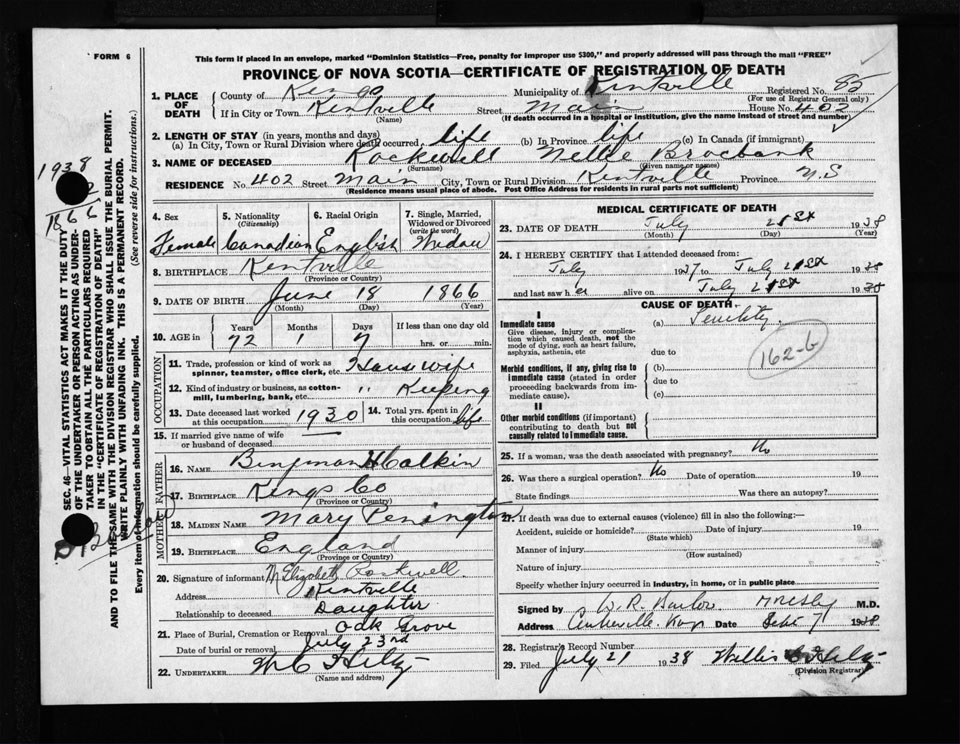 FORM 6
This form if placed in an envelope, marked "Dominion Statistics—Free, penalty for improper use $300," and properly addressed will pass through the mail "FREE"
PROVINCE OF NOVA SCOTIA—CERTIFICATE OF REGISTRATION OF DEATH
1. PLACE OF DEATH
County of Kings Municipality of Kentville Registered No. 85
(For use of Registrar General only)
If in City or Town Kentville Street Main House No. 402
(Name) (If death occurred in a hospital or institution, give the name instead of street and number)
2. LENGTH OF STAY (in years, months and days)
(a) In City, Town or Rural Division where death occurred, life (b) In Province life (c) In Canada (if immigrant)
3. NAME OF DECEASED Rockwell Nellie
(Surname) (Given name or names)
RESIDENCE No. 402 Street Main City, Town or Rural Division Kentville Province N.S
(Residence means usual place of abode. Post Office Address for residents in rural parts not sufficient)
4. Sex Female
5. Nationality (Citizenship) Canadian
6. Racial Origin English
7. Single, Married, Widowed or Divorced (write the word) Widow
8. BIRTHPLACE Kentville
(Province or Country)
9. DATE OF BIRTH June 1866
(Month) (Day) (Year)
10. AGE in Years Months Days If less than one day old
72 1 hrs. or min.
OCCUPATION
11. Trade, profession or kind of work as spinner, teamster, office clerk, etc. House wife
12. Kind of industry or business, as cotton-mill, lumbering, bank, etc. " Keeping
13. Date deceased last worked at this occupation 1930
14. Total yrs. spent in this occupation life
15. If married give name of wife or husband of deceased
FATHER
16. NAME Calkin
17. BIRTHPLACE Kings Co
(Province or Country)
MOTHER
18. MAIDEN NAME Mary Penington
19. BIRTHPLACE England
(Province or Country)
20. Signature of informant M Elizabeth Rockwell
Address Kentville
Relationship to deceased Daughter
21. Place of Burial, Cremation or Removal Oak Grove
Date of burial or removal July 23rd
22. UNDERTAKER W C
(Name and address)
MEDICAL CERTIFICATE OF DEATH
23. DATE OF DEATH July 21st 1938
(Month) (Day) (Year)
24. I HEREBY CERTIFY that I attended deceased from:
July 1937 to July 21st 1938
and last saw her alive on July 21st 1938
CAUSE OF DEATH
I
Immediate cause (a) Senility
Give disease, injury or complication which caused death, not the mode of dying, such as heart failure, asphyxia, asthenia, etc
due to
162-b
Morbid conditions, if any, giving rise to immediate cause (stated in order proceeding backwards from immediate cause).
(b)
due to
(c)
II
Other morbid conditions (if important) contributing to death but not causally related to immediate cause.
25. If a woman, was the death associated with pregnancy? No
26. Was there a surgical operation? No Date of operation 19
State findings Was there an autopsy?
27. If death was due to external causes (violence) fill in also the following:—
Accident, suicide or homicide? Date of injury 19
(State which)
Manner of injury
(How sustained)
Nature of injury
Specify whether injury occurred in industry, in home, or in public place
Signed by W. R. M.D.
Address Date Sept 7 1938
28. Registrar's Record Number
29. Filed July 21 1938 Willis
(Division Registrar)
SEC. 46—VITAL STATISTICS ACT MAKES IT THE DUTY
OF THE UNDERTAKER OR PERSON ACTING AS UNDER-
TAKER TO OBTAIN ALL THE PARTICULARS REQUIRED
IN THE "CERTIFICATE OF REGISTRATION OF DEATH"
AND TO FILE THE SAME WITH THE DIVISION REGISTRAR WHO SHALL ISSUE THE BURIAL PERMIT.
WRITE PLAINLY WITH UNFADING INK. THIS IS A PERMANENT RECORD.
Every item of information should be carefully supplied. (See reverse side for instructions.)
1938
1866